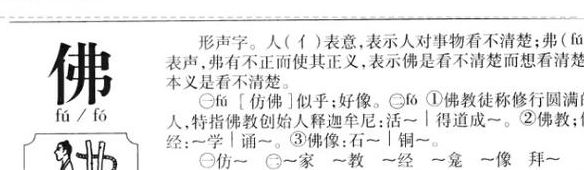 佛
fú / fó
形声字。人(亻)表意,表示人对事物看不清楚;弗(fú
表声,弗有不正而使其正义,表示佛是看不清楚而想看清楚
本义是看不清楚。
㊀fú [仿佛]似乎;好像。㊁fó ①佛教徒称修行圆满的
人,特指佛教创始人释迦牟尼:活~|得道成~。②佛教;佛
经:~学|诵~。③佛像:石~|铜~。
㊀仿~ ㊁~家 ~教 ~经 ~龛 ~像 拜~